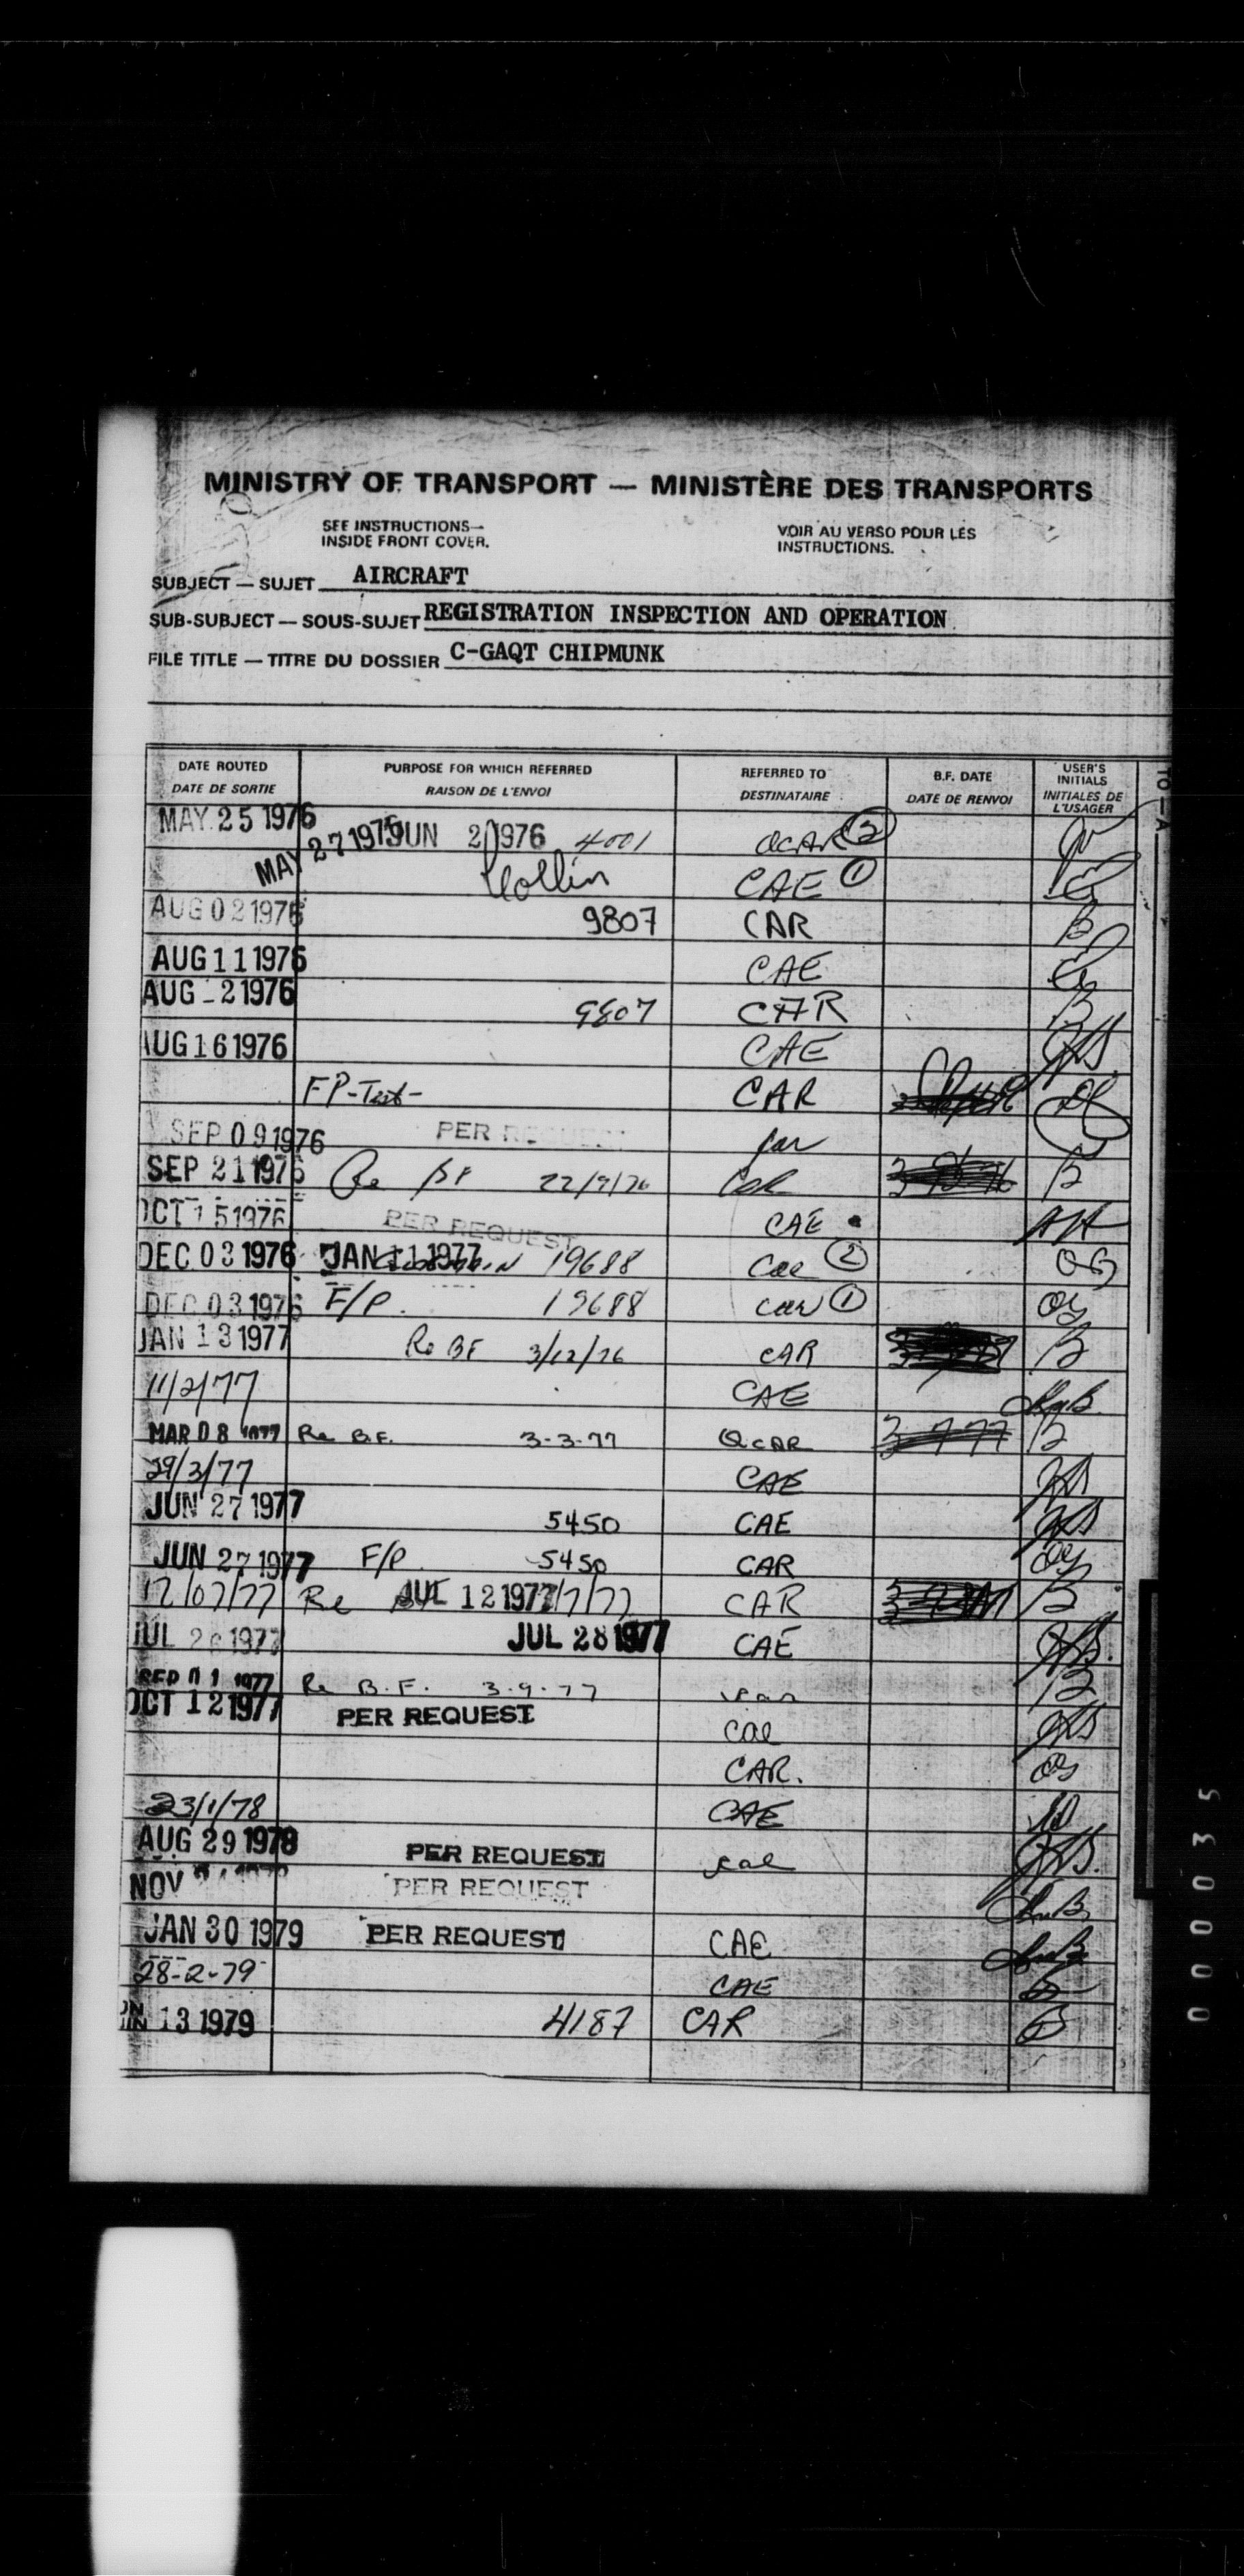 MINISTRY OF TRANSPORT — MINISTÈRE DES TRANSPORTS
SEE INSTRUCTIONS— INSIDE FRONT COVER.
VOIR AU VERSO POUR LES INSTRUCTIONS.
SUBJECT — SUJET AIRCRAFT
SUB-SUBJECT — SOUS-SUJET REGISTRATION INSPECTION AND OPERATION
FILE TITLE — TITRE DU DOSSIER C-GAQT CHIPMUNK
DATE ROUTED DATE DE SORTIE
PURPOSE FOR WHICH REFERRED RAISON DE L'ENVOI
REFERRED TO DESTINATAIRE
B.F. DATE DATE DE RENVOI
USER'S INITIALS INITIALES DE L'USAGER
MAY 25 1976 JUN 2 1976 4001 QCAR 2
MAY 27 1976 CAE 1
AUG 02 1976 9807 CAR B
AUG 11 1976 CAE
AUG -2 1976 9807 CAR B
AUG 16 1976 CAE
FP-Test- CAR
SEP 09 1976 PER REQUEST Car
SEP 21 1976 Re BF 22/9/76 CAR B
OCT 15 1976 PER REQUEST CAE
DEC 03 1976 JAN 11 1977 19688 Cae 2
DEC 03 1976 F/P. 19688 car 1
JAN 13 1977 Re BF 3/12/76 CAR B
11/2/77 CAE
MAR 08 1977 Re B.F. 3-3-77 QCAR 3 7 77 B
29/3/77 CAE
JUN 27 1977 5450 CAE
JUN 27 1977 F/P 5450 CAR
12/07/77 Re JUL 12 1977 /7/77 CAR B
JUL 28 1977 JUL 28 1977 CAE
SEP 01 1977 Re B.F. 3.9.77 B
OCT 12 1977 PER REQUEST cae
CAR.
23/1/78 CAE
AUG 29 1978 PER REQUEST cae
NOV PER REQUEST
JAN 30 1979 PER REQUEST CAE
28-2-79 CAE
13 1979 4187 CAR B
TO — A
000035